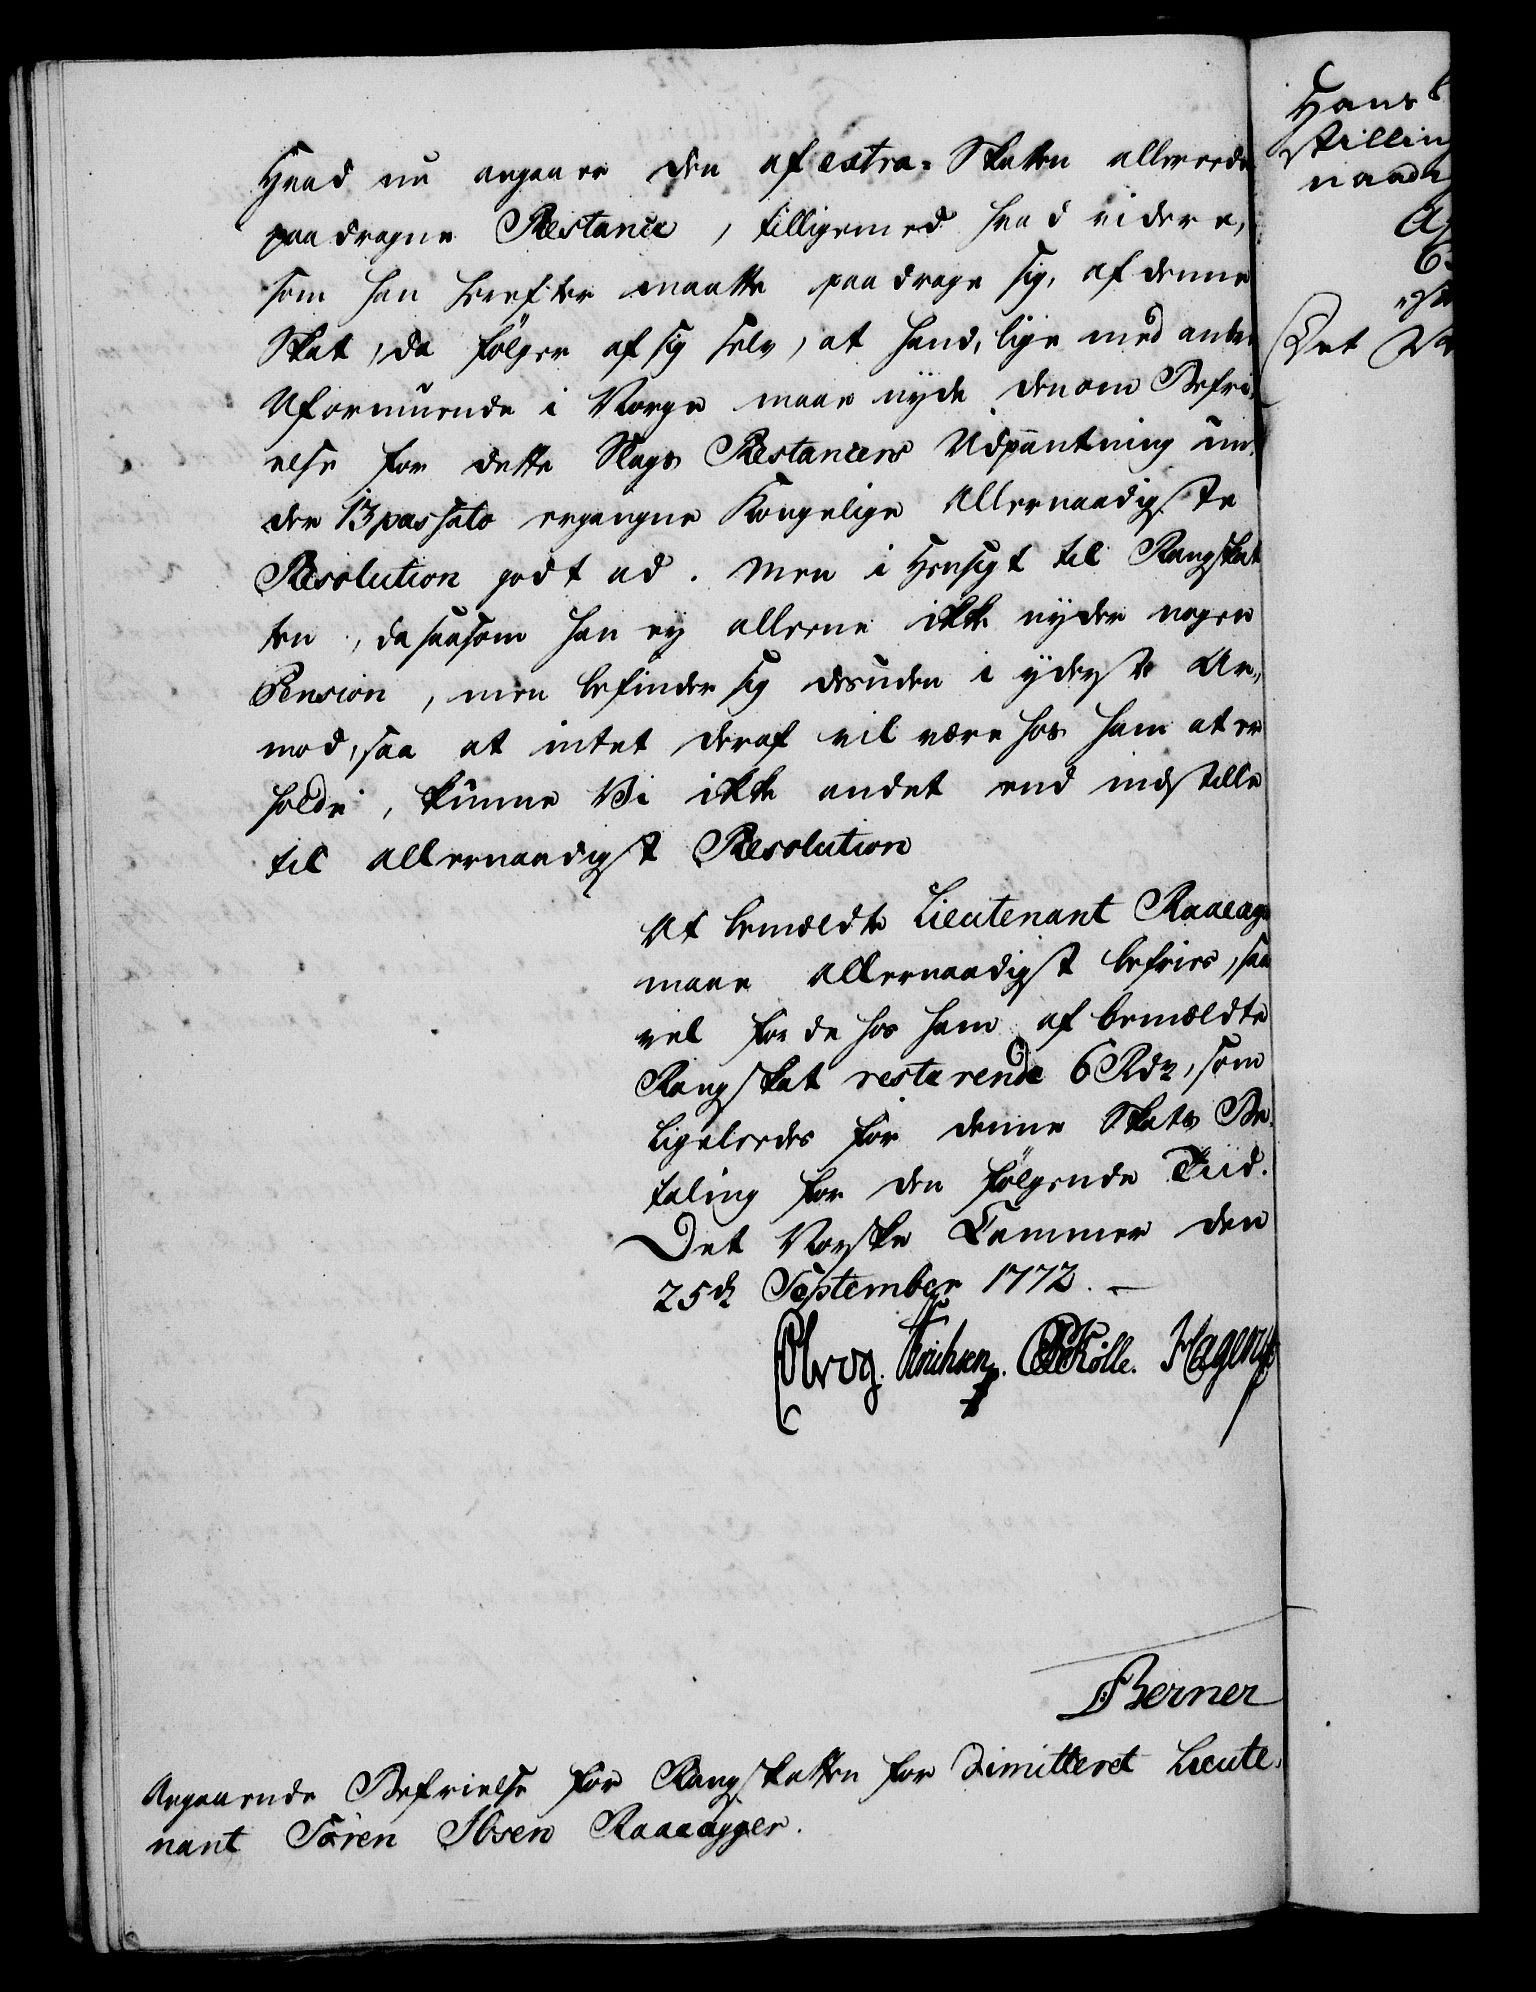 Hvad nu angaaer den af extra-Skatten allereede
paadragne Restance, tilligemed hvad videre,
som han herefter maatte paadrage sig, af denne
Skat, da følger af sig selv, at hand, lige med andre
Uformuende i Norge maae nyde den om Befri-
else for dette Slags Restancers Udpantning un-
der 13 passato ergangne Kongelige Allernaadigste
Resolution godt ad. Men i Hensigt til Rangskat
ten, da saasom han ey alleene ikke nyder nogen
Pension, men befinder sig desuden i yderste Ar-
mod, saa at intet deraf vil være hos ham at er
holde, kunne Vi ikke andet end indstille
til allernaadigst Resolution
At bemældte Lieutenant Raaeag
maae allernaadigst befries, saa
vel for de hos ham af bemældte
Rangskat resterende 6 Rdr, som
ligeledes for denne Skats Be-
taling for den følgende Tiid.
Det Norske Cammer den
25de September 1772. —
Holle. Hagerup
Berner
Angaaende Befrielse for Rangskatten for Dimitteret Lieute-
nant Sören Ibsen Raaeagger.
Hans
stilling
naadig
Det